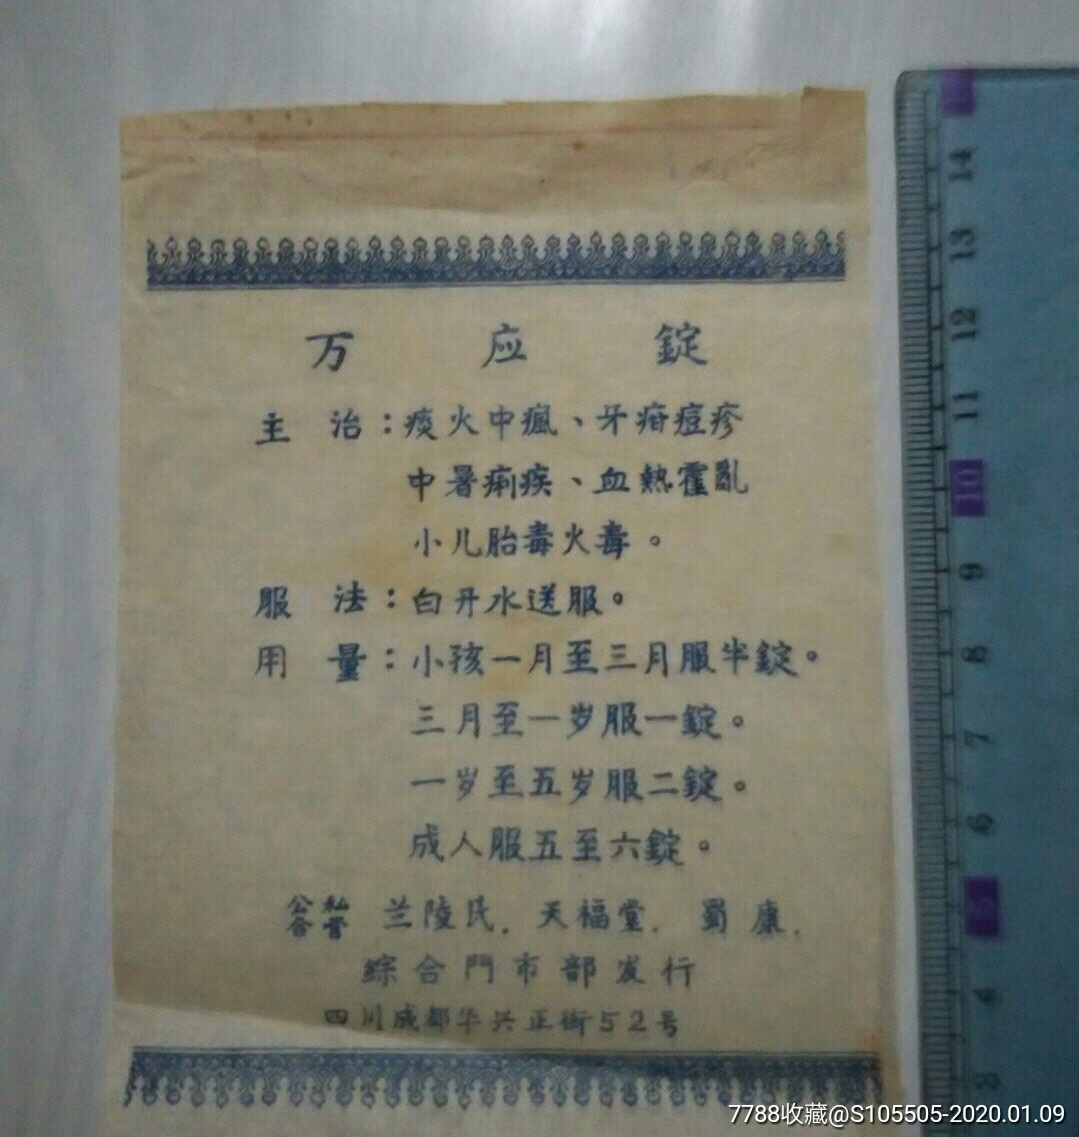 万应錠
主治：痰火中瘋、牙疳痘疹
中暑痢疾、血熱霍亂
小儿胎毒火毒。
服法：白开水送服。
用量：小孩一月至三月服半錠。
三月至一岁服一錠。
一岁至五岁服二錠。
成人服五至六錠。
公私合营 兰陵民．天福堂．蜀康．
綜合門市部发行
四川成都华兴正街52号
14
13
12
11
10
9
8
7
6
5
4
3
7788收藏@S105505-2020.01.09